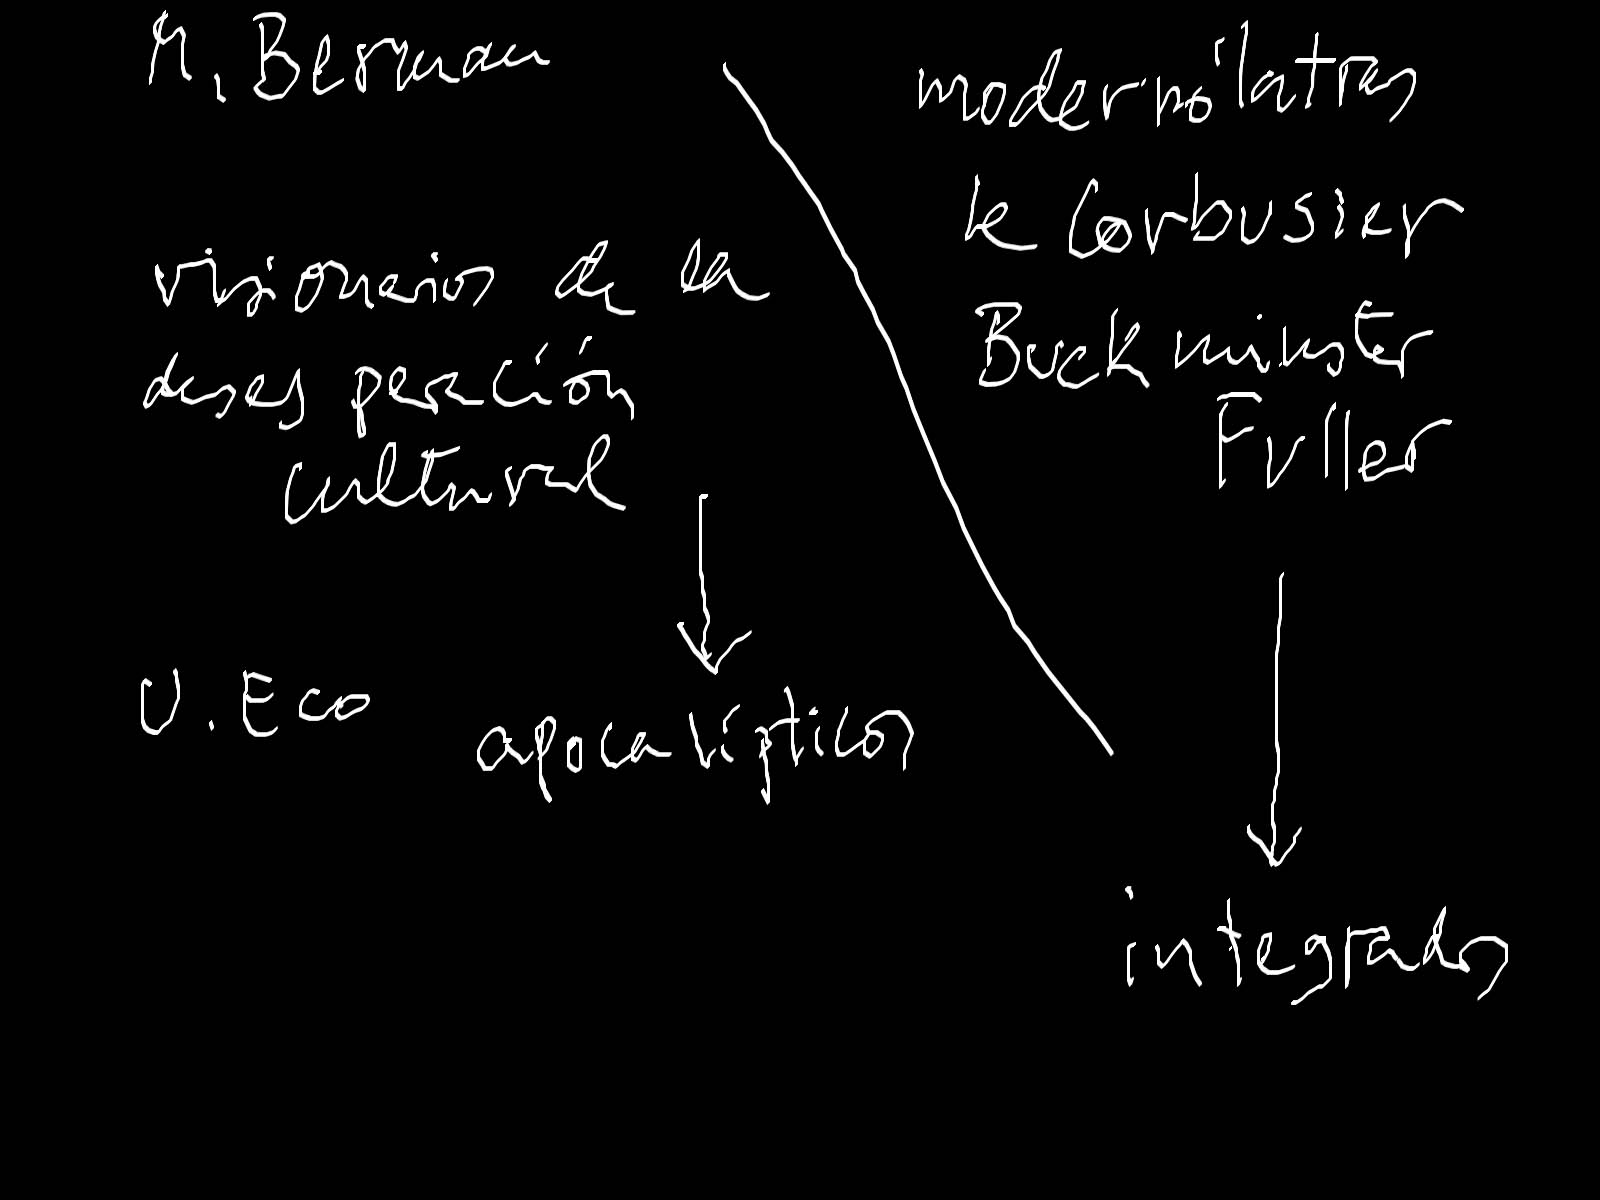 M. Berman
modernólatras
le Corbusier
Buckminster
Fuller
visionarios de la
desesperación
cultural
U. Eco
apocalípticos
integrados